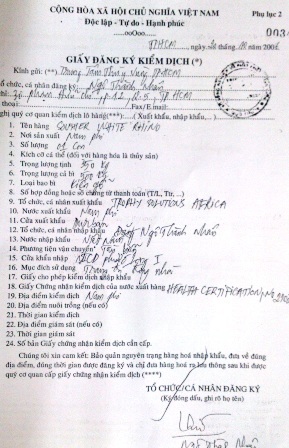 CỘNG HÒA XÃ HỘI CHỦ NGHĨA VIỆT NAM Phụ lục 2
Độc lập - Tự do - Hạnh phúc
-----ooOoo----- 003
TPHCM, ngày
GIẤY ĐĂNG KÝ KIỂM DỊCH (*)
Kính gửi: (**) Trung Tâm Thú y Vùng TPHCM
Tổ chức, cá nhân đăng ký: Ngô Thành Nhân
chỉ: P12, Q5, TP HCM
thoại: Fax/E.mail:
nghị quý cơ quan kiểm dịch lô hàng(***): (Xuất khẩu, nhập khẩu,...)
1. Tên hàng WHITE RHINO
2. Nơi sản xuất Nam phi
3. Số lượng 01 con
4. Kích cỡ cá thể (đối với hàng hóa là thủy sản)
5. Trọng lượng tịnh kg
6. Trọng lượng cả bì kg
7. Loại bao bì Kiện gỗ
8. Số hợp đồng hoặc số chứng từ thanh toán (T/L, Ttr, ...)
9. Tổ chức, cá nhân xuất khẩu TROPHY SOLUTIONS AFRICA
10. Nước xuất khẩu Nam phi
11. Cửa khẩu xuất
12. Tổ chức, cá nhân nhập khẩu Ngô Thành Nhân
13. Nước nhập khẩu Việt Nam
14. Phương tiện vận chuyển
15. Cửa khẩu nhập
16. Mục đích sử dụng
17. Giấy cho phép kiểm dịch nhập khẩu
18. Giấy Chứng nhận kiểm dịch của nước xuất hàng HEALTH CERTIFICATION
19. Địa điểm kiểm dịch Nam phi
20. Địa điểm nuôi trồng (nếu có)
21. Thời gian kiểm dịch
22. Địa điểm giám sát (nếu có)
23. Thời gian giám sát
24. Số bản Giấy chứng nhận kiểm dịch cần cấp.
Chúng tôi xin cam kết: Bảo quản nguyên trạng hàng hoá nhập khẩu, đưa về đúng
địa điểm, đúng thời gian được đăng ký và chỉ đưa hàng hoá ra lưu thông sau khi được
quý cơ quan cấp giấy chứng nhận kiểm dịch (****)
TỔ CHỨC/CÁ NHÂN ĐĂNG KÝ
(Ký đóng dấu, ghi rõ họ tên)
Ngô Thành Nhân